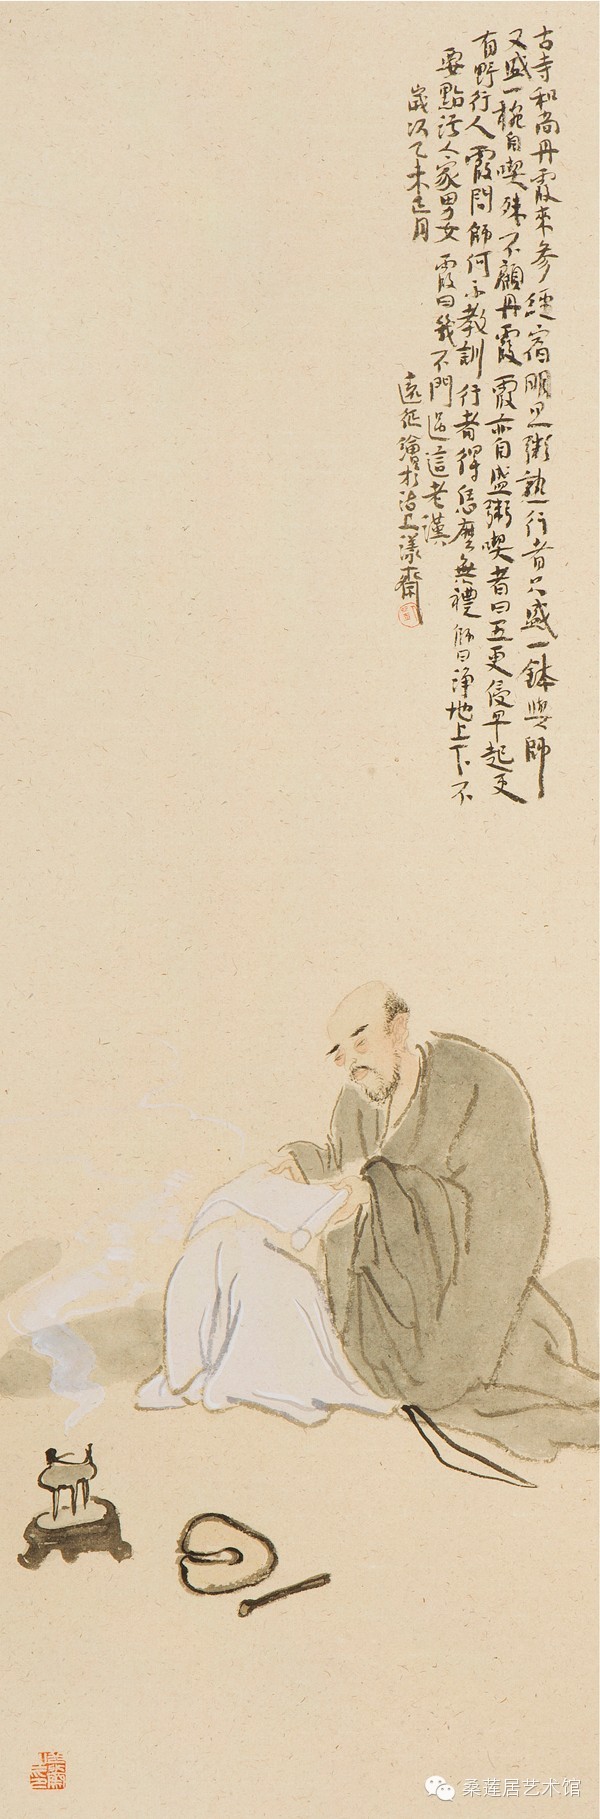 古寺和尚丹霞來參經宿明旦粥熟行者只盛一鉢與師
又盛一椀自喫殊不顧丹霞霞亦自盛粥喫者曰五更侵早起更
有野行人霞問師何不教訓行者得恁麼無禮師曰淨地上不
要點污人家男女霞曰幾不問過這老漢
歲次乙未正月
遠征繪於沽上漾齋
桑莲居艺术馆